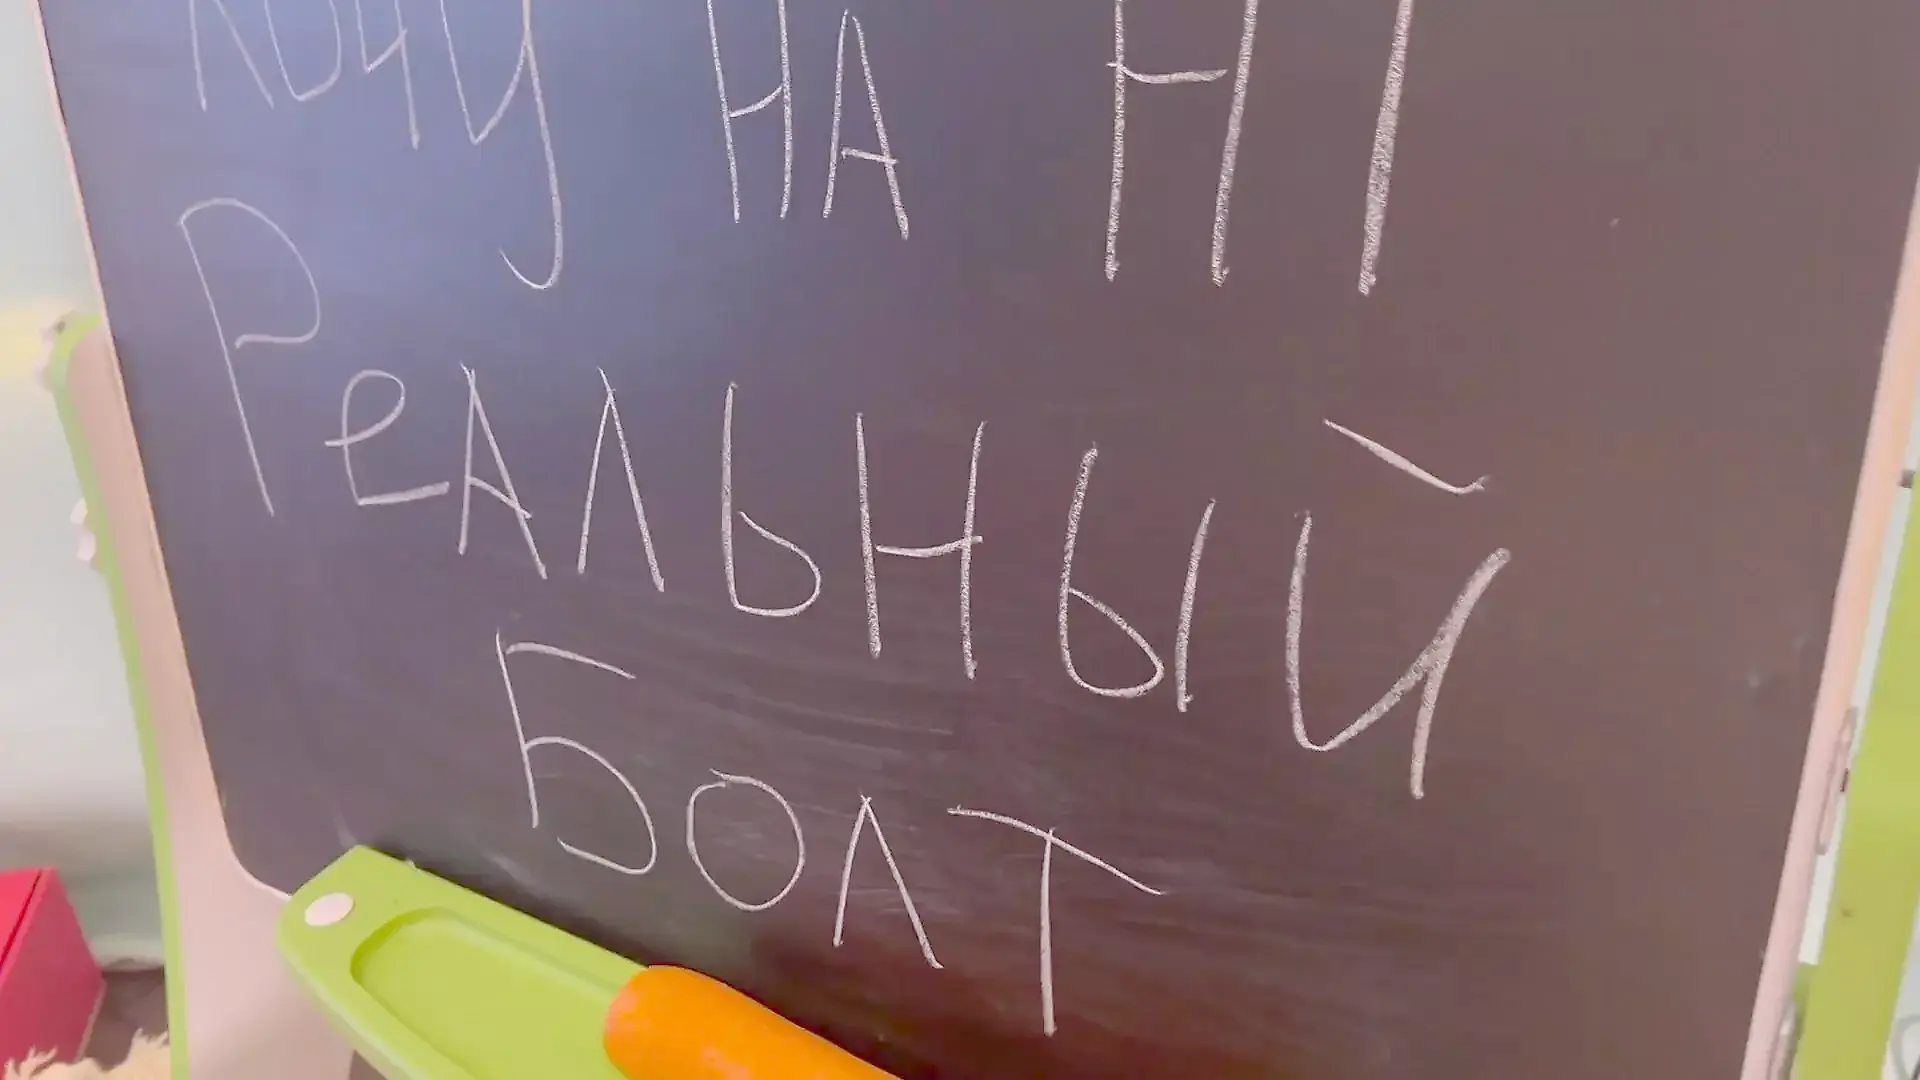 ХОЧУ НА
РеАЛЬНЫЙ
БОЛТ